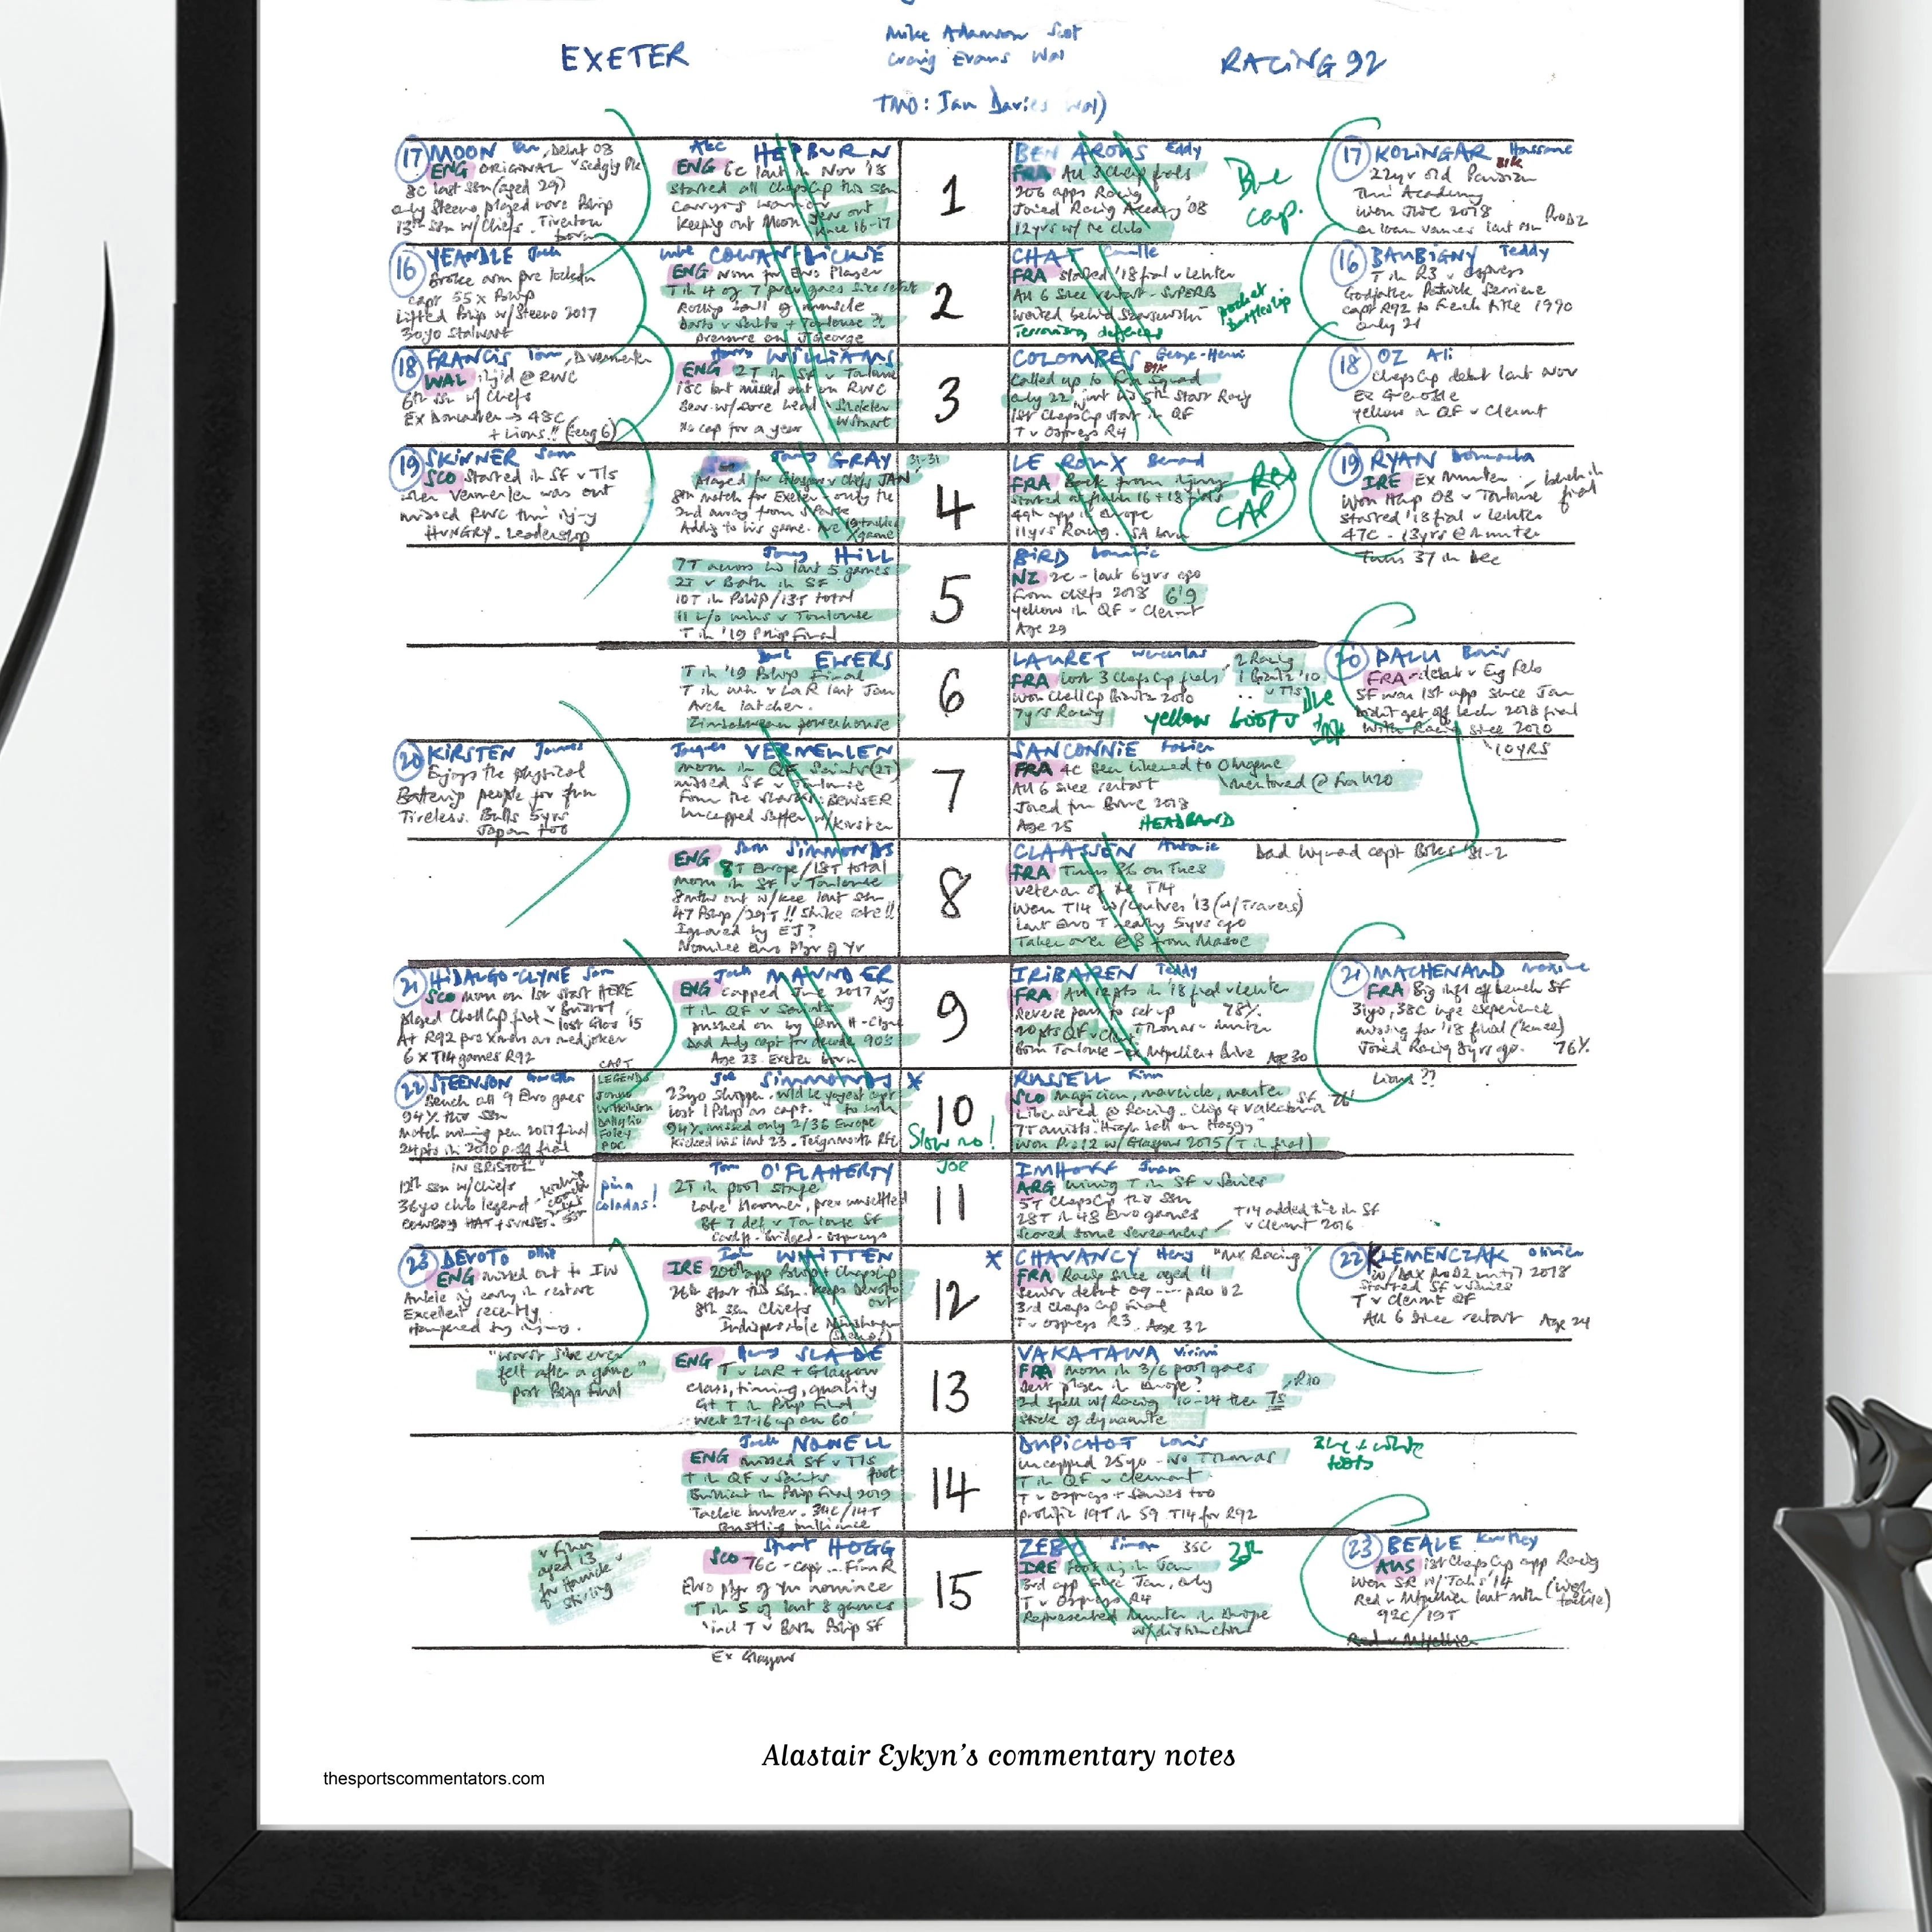 EXETER
Mike Adamson Scot
Craig Evans Wal
RACING 92
TMO: Ian Davies (Wal)
17 MOON Ben, Debut 08
ENG ORIGINAL
8C last ssn (aged 29)
only Steeno played more Pship
13th ssn w/ Chiefs. Tiverton
born
Alec HEPBURN
ENG 6c last in Nov '18
started all ChapsCup this ssn
Carrying warrior
keeping out Moon
knee 16-17
1
BEN AROUS Eddy
FRA All 3 Chap finals
206 apps Racing
Joined Racing Academy '08
12yrs w/ the club
Blue
Cap.
17 KOLINGAR Hassane
22yr old Parisian
Thru Academy
won JWC 2018
on loan Vannes last ssn ProD2
16 YEANDLE Jack
Broke arm pre lockdn
capt 55 x Pship
Lifted Pship w/ Steeno 2017
30yo stalwart
Luke COWAN-DICKIE
ENG Nom for Euro Player
T in 4 of 7 prev games since restart
Rolling ball of muscle
Darts v Saints + Toulouse ?!
pressure on J George
2
CHAT Camille
FRA started '18 final v Leinster
All 6 since restart - SUPERB
waited behind Szarzewski
Terrorising defences
pocket
battleship
16 BAUBIGNY Teddy
T in R3 v Ospreys
Godfather Patrick Serriere
capt R92 to French title 1990
only 21
18 FRANCIS Tom,
WAL inj'd @ RWC
6th ssn w/ Chiefs
Ex Doncaster → 48C
+ Lions!! (Geog 6)
Harry WILLIAMS
ENG 2T in SF v Toulouse
18C but missed out on RWC
Bear w/ sore head
No cap for a year
3
COLOMBES George-Henri
Called up to Fra Squad
only 22, just his 5th start Racing
1st ChapsCup start in QF
T v Ospreys R4
18 OZ Ali
ChapsCup debut last Nov
Ex Grenoble
yellow in QF v Clermt
19 SKINNER Sam
SCO started in SF v Tls
when Vermeulen was out
missed RWC thru injury
HUNGRY. Leadership
Jonny GRAY
31-31
Played for Glasgow v Chiefs JAN
8th match for Exeter - only the
2nd away from S Park
Adding to his game. Ave 19 tackles
x game
4
LE ROUX Bernard
FRA Back from injury
started in both 16 + 18 finals
49th app in Europe
11yrs Racing. SA born
RED
CAP
19 RYAN Donnacha
IRE Ex Munster
bench in
final
won Hcup 08 v Toulouse
started '18 final v Leinster
47C - 13yrs @ Munster
Turns 37 in Dec
Jonny HILL
7T across his last 5 games
2T v Bath in SF
10T in Pship/13T total
11 L/o wins v Toulouse
T in '19 Pship Final
5
BIRD Dominic
NZ 2c - last 6yrs ago
From Chiefs 2018 6'9
yellow in QF v Clermt
Age 29
Dave EWERS
T in '19 Pship Final
T in win v LaR last Jan
Arch latcher.
Zimbabwean powerhouse
6
LAURET Wenceslas
FRA Lost 3 ChapsCup finals
2 Racing
1 Biarritz '10
v Tls
won ChallCup Biarritz 2010
7yrs Racing
yellow boots
20 PALU Boris
FRA - debut v Eng Feb
SF was 1st app since Jan
Didn't get off bench 2018 final
with Racing since 2010
10 YRS
20 KIRSTEN Jannes
Enjoys the physical
Battering people for fun
Tireless. Bulls 5yrs
Japan too
Jacques VERMEULEN
mom in QF v Saints (2T)
missed SF v Toulouse
From the Sharks: BRUISER
Uncapped Saffer w/ Kirsten
7
SANCONNIE Fabien
FRA 4C Been likened to O Magne
Mentored @ Fra U20
All 6 since restart
Joined from Brive 2018
Age 25
HEADBAND
Sam SIMMONDS
ENG 8T Europe/18T total
mom in SF v Toulouse
8mths out w/ knee last ssn
47 Pship/29T!! Strike rate!!
Ignored by EJ?
Nominee Euro Plyr of Yr
8
CLAASSEN Antonie
Dad Wynand capt Boks '81-2
FRA Turns 36 on Tues
veteran of the T14
Won T14 w/ Castres '13 (w/ Travers)
last Euro T nearly 5yrs ago
Taken over @ 8 from Masoe
21 HIDALGO-CLYNE Sam
SCO mom on 1st start HERE
v Bristol
played ChallCup final - lost Glos '15
At R92 pre xmas as med joker
6 x T14 games R92
Jack MAUNDER
ENG capped June 2017 v Arg
T in QF v Saints
pushed on by Sam H-Clyne
Dad Ady capt for decade 90's
Age 23. Exeter born
9
IRIBAREN Teddy
FRA All 12pts in '18 final v Leinster
Reverse pass to set up
78%
20pts QF v Clermt
Thomas - Munster
Born Toulouse - ex Mtpellier + Brive Age 30
21 MACHENAUD Maxime
FRA Big infl off bench SF
31yo, 38C huge experience
missing for '18 final (knee)
Joined Racing 8yrs ago. 76%
Lions??
22 STEENSON Gareth
Bench all 9 Euro games
94% this ssn
match winning pen 2017 final
24pts in 2010 p-off final
IN BRISTOL
12th ssn w/ Chiefs
36yo club legend
COWBOY HAT + SUNSET.
CAPT
LEGENDS
Jonno
Wilkinson
Dallaglio
Foley
POC
piña
coladas!
Joe SIMMONDS *
23yo skipper. wld be yngest capt
to win
lost 1 Pship as capt.
94%, missed only 2/36 Europe
Kicked his last 23. Teignmouth RFC
10
Slow no!
JOE
RUSSELL Finn
SCO Magician, maverick, master
Liberated @ Racing. Chip 4 Vakatawa SF
7T assists "High ball on Hoggy"
won Pro12 w/ Glasgow 2015 (T in final)
Tom O'FLAHERTY
2T in pool stage
Late bloomer, prev unsettled
Bt 7 def v Toulouse SF
Cardiff - Bridgend - Ospreys
11
IMHOFF Juan
ARG winning T in SF v Saries
5T ChapsCp this ssn
28T in 48 Euro games
Scored some screamers
T14 added time in SF
v Clermt 2016
23 DEVOTO Ollie
ENG missed out to IW
Ankle inj early in restart
Excellent recently.
Hampered by injury.
Ian WHITTEN
IRE 200th app Pship + ChapsCup
26th start this ssn. Keeps Devoto
out
8th ssn Chiefs
Indispensable
12
* CHAVANCY Henry "Mr Racing"
FRA Racing since aged 11
Senior debut 09 --- pro D2
3rd Chaps Cup Final
T v Ospreys R3. Age 32
22 KLEMENCZAK Olivier
w/ Dax ProD2 until 2018
Started SF v Saries
T v Clermt QF
All 6 since restart Age 24
"worst I've ever
felt after a game"
post Pship final
Henry SLADE
ENG T v LaR + Glasgow
class, timing, quality
Gt T in Pship Final
Went 27-16 up on 60'
13
VAKATAWA Virimi
FRA mom in 3/6 pool games
Best player in Europe?
Rio
2nd spell w/ Racing '10-14 then 7s
Stick of dynamite
Jack NOWELL
ENG missed SF v Tls
foot
T in QF v Saints
Brilliant in Pship Final 2019
Tackle buster. 34C/14T
Bustling brilliance
14
DUPICHOT Louis
uncapped 25yo - no Thomas
T in QF v Clermont
T v Ospreys + Saries too
prolific 19T in 59 T14 for R92
Blue + white
boots
v Finn
aged 13
for Hawick
v Stirling
Stuart HOGG
SCO 76C - capt ... Finn R
Euro plyr of yr nominee
T in 5 of last 8 games
incl T v Bath Pship SF
Ex Glasgow
15
ZEBO Simon 35C
IRE Foot inj in Jan
3rd app since Jan, only
T v Ospreys R4
Represented Munster in Europe
w/ distinction
23 BEALE Kurtley
AUS 1st ChapsCup app Racing
won SR w/ Tahs '14
Red v Mtpellier last mth (high tackle)
92C/19T
Red v Mtpellier
Alastair Eykyn's commentary notes
thesportscommentators.com